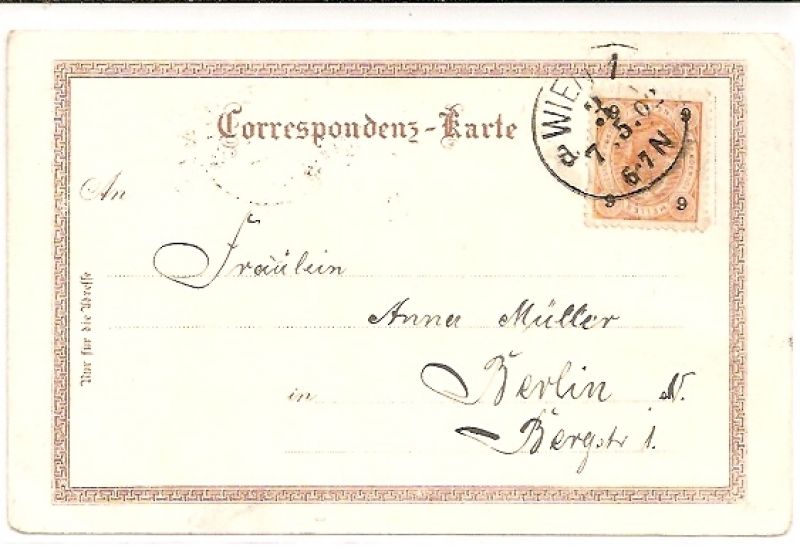 Correspondenz-Karte
WIEN 1
7.5.0
6-7N
9
9
9
An
Fräulein
Anna Müller
in Berlin N.
Bergstr 1.
Nur für die Adresse